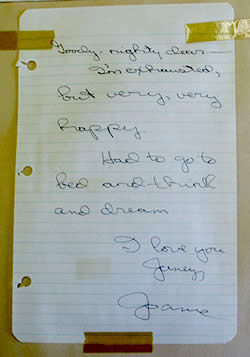 Goody-nighty dear—
I'm exhausted,
but very, very
happy.
Had to go to
bed and think
and dream
I love you
Janey,
Joanie